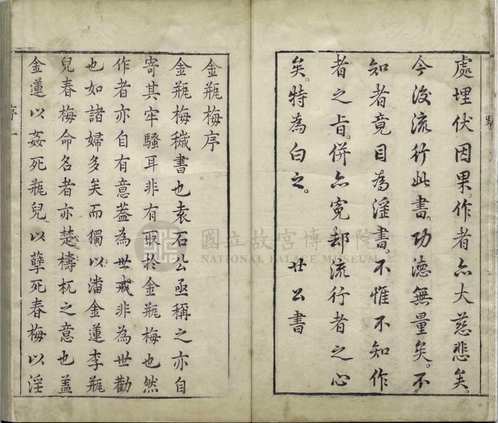 處埋伏因果作者亦大慈悲矣
今後流行此書功德無量矣不
知者竟目為淫書不惟不知作
者之旨併亦冤却流行者之心
矣特為白之
廿公書
金瓶梅序
金瓶梅穢書也袁石公亟稱之亦自
寄其牢騷耳非有取於金瓶梅也然
作者亦自有意葢為世戒非為世勸
也如諸婦多矣而獨以潘金蓮李瓶
兒春梅命名者亦楚檮杌之意也盖
金蓮以姦死瓶兒以孽死春梅以淫
序
一
國立故宮博物院
NATIONAL PALACE MUSEUM